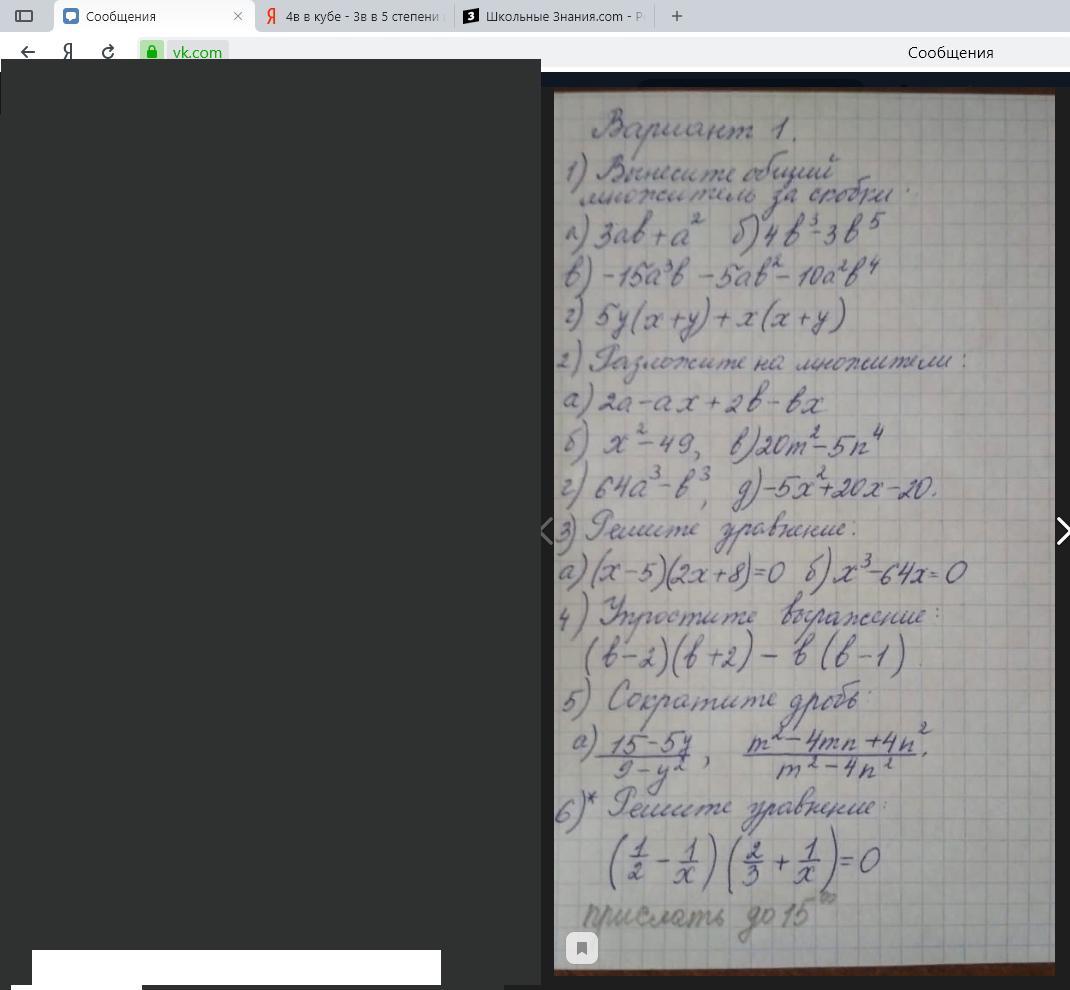 Сообщения
4в в кубе - 3в в 5 степени
Школьные Знания.com - Р
vk.com
Сообщения
Вариант 1.
1) Вынесите общий
множитель за скобки:
а) 3ав + а² б) 4в³ - 3в⁵
в) -15а³в - 5ав² - 10а²в⁴
г) 5у(х+у) + х(х+у)
2) Разложите на множители:
а) 2а - ах + 2в - вх
б) х² - 49, в) 20m² - 5n⁴
г) 64а³ - в³, д) -5х² + 20х - 20.
3) Решите уравнение:
а) (х-5)(2х+8)=0 б) х³-64х=0
4) Упростите выражение:
(в-2)(в+2) - в(в-1)
5) Сократите дробь:
а) (15-5у)/(9-у²), (m²-4mn+4n²)/(m²-4n²).
6)* Решите уравнение:
(1/2 - 1/х)(2/3 + 1/х)=0
прислать до 15⁰⁰